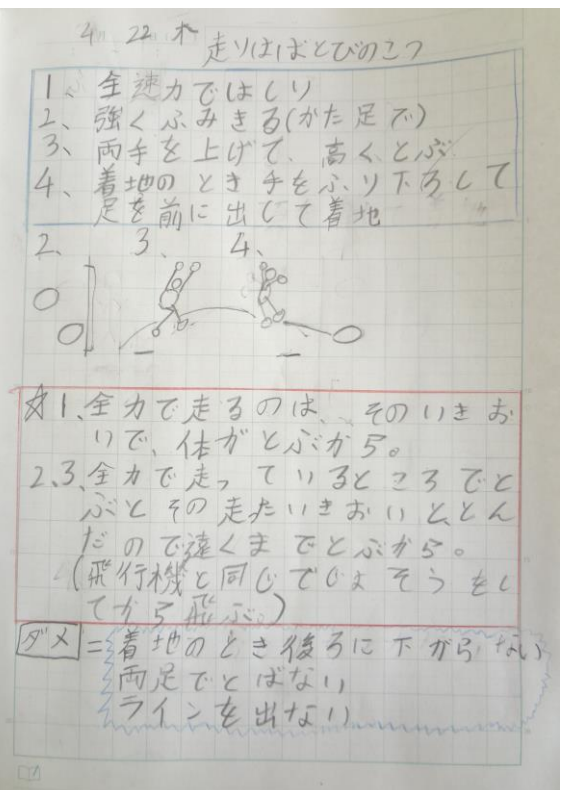 4 22 木
走りはばとびのこつ
1、全速力ではしり
2、強くふみきる(かた足で)
3、両手を上げて、高くとぶ
4、着地のとき手をふり下ろして
足を前に出して着地
2、 3、 4、
☆1、全力で走るのは、そのいきお
いで、体がとぶから。
2、3、全力で走っているところでと
ぶとその走たいきおいと、とん
だので遠くまでとぶから。
(飛行機と同じでじょそうをし
てから飛ぶ。)
ダメ=着地のとき後ろに下がらない
両足でとばない
ラインを出ない